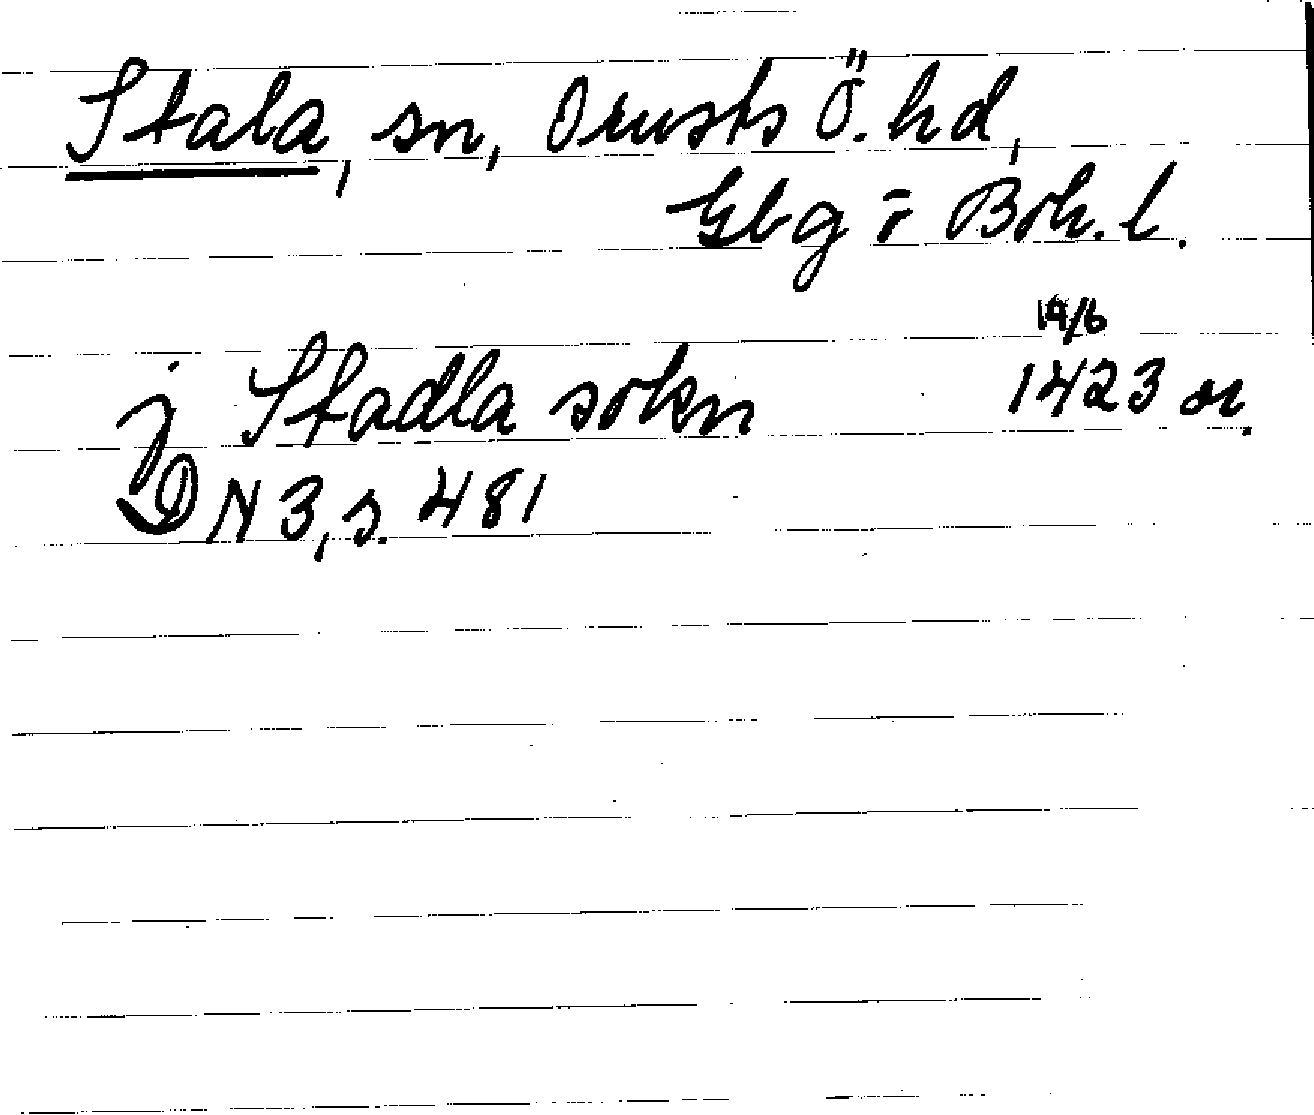 Stala, sn, Orusts Ö. hd,
Gbg o Boh. l.
14/6
j Stadla sokn 1423 or.
DN 3, s. 481